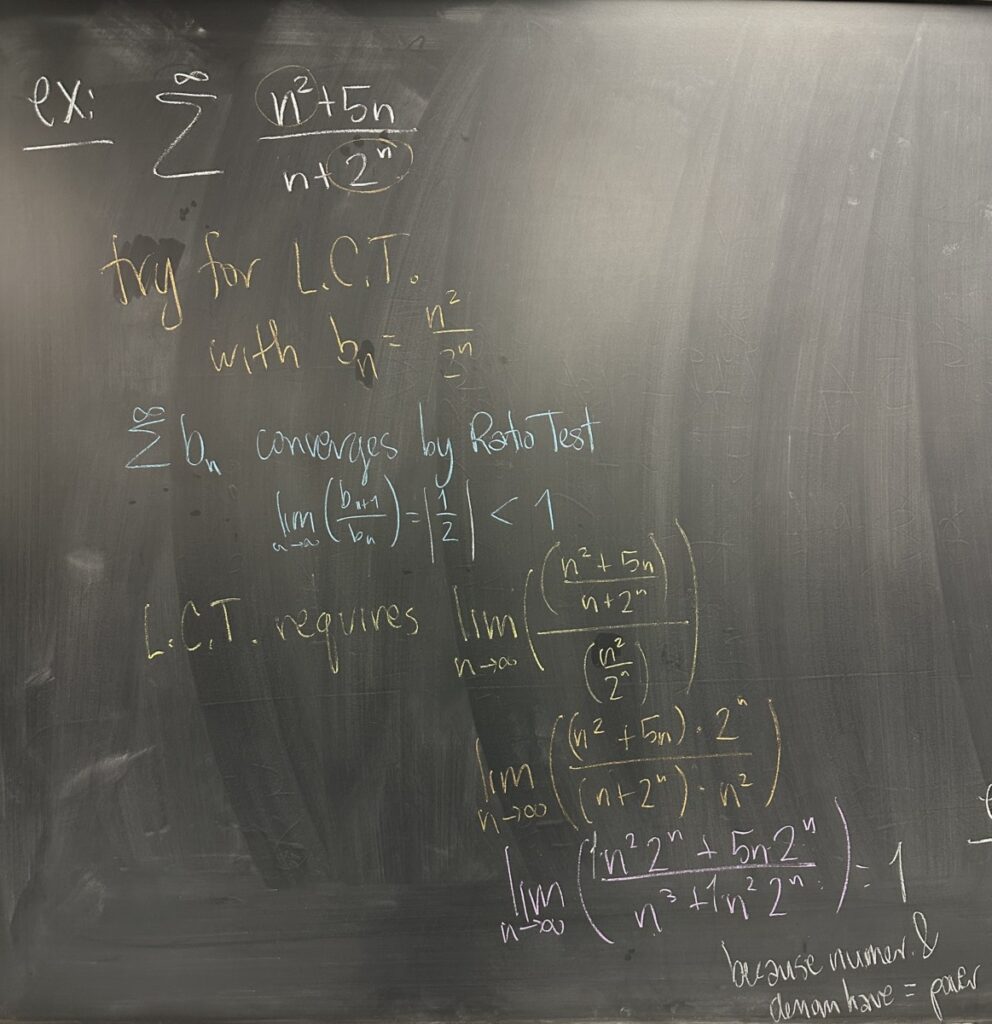 ex: ∞ Σ (n² + 5n)/(n + 2ⁿ)
try for L.C.T.
with bₙ = n²/2ⁿ
∞ Σ bₙ converges by Ratio Test
lim n→∞ (bₙ₊₁/bₙ) = |1/2| < 1
L.C.T. requires lim n→∞ (((n² + 5n)/(n + 2ⁿ))/(n²/2ⁿ))
lim n→∞ (((n² + 5n) · 2ⁿ)/((n + 2ⁿ) · n²))
lim n→∞ ((1·n² 2ⁿ + 5n·2ⁿ)/(n³ + 1·n² 2ⁿ)) = 1
because numer. &
denom have = power